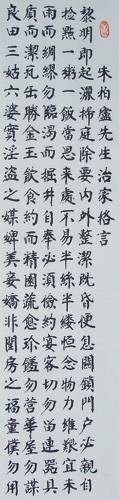 朱柏廬先生治家格言
黎明即起灑掃庭除要內外整潔既昏便息關鎖門戶必親自
檢點一粥一飯當思來處不易半絲半縷恒念物力維艱宜未
雨而綢繆勿臨渴而掘井自奉必須儉約宴客切勿留連器具
質而潔瓦缶勝金玉飲食約而精園蔬愈珍饈勿營華屋勿謀
良田三姑六婆實淫盜之媒婢美妾嬌非閨房之福童僕勿用